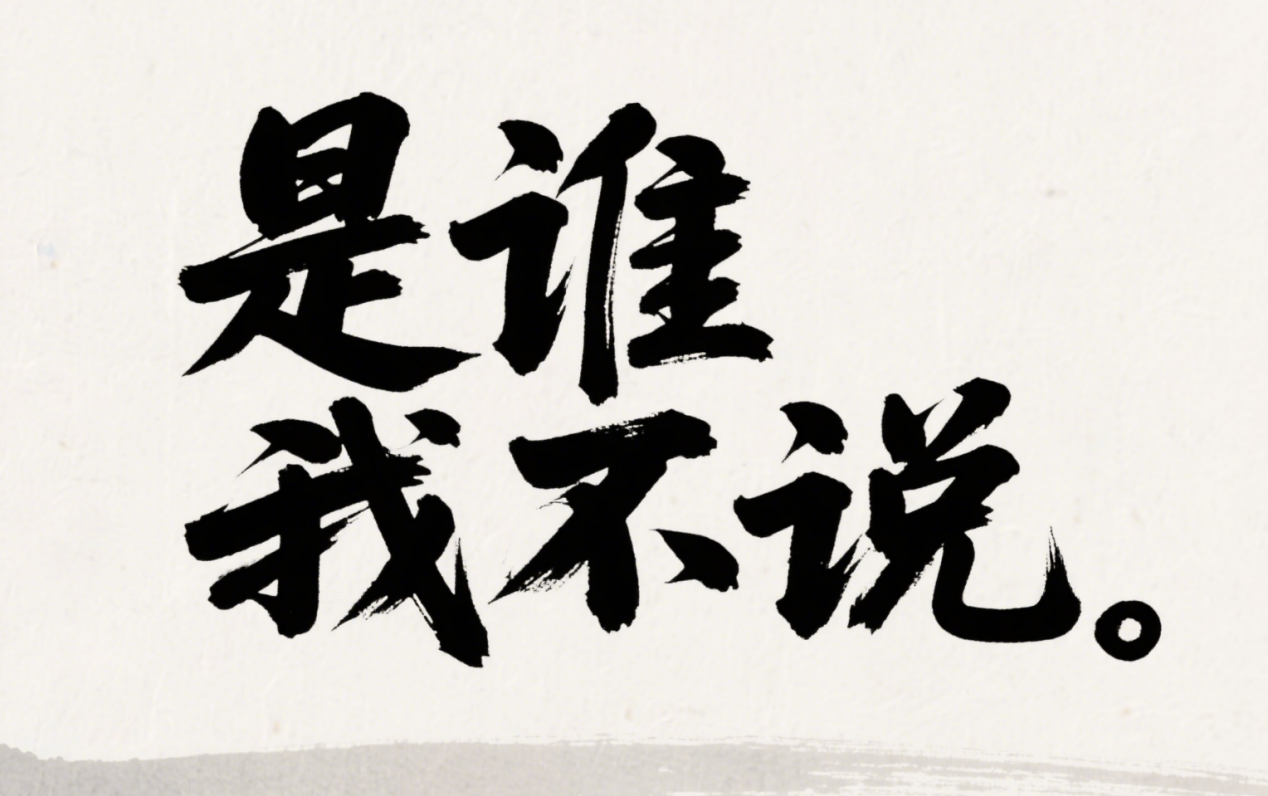 是谁
我不说。